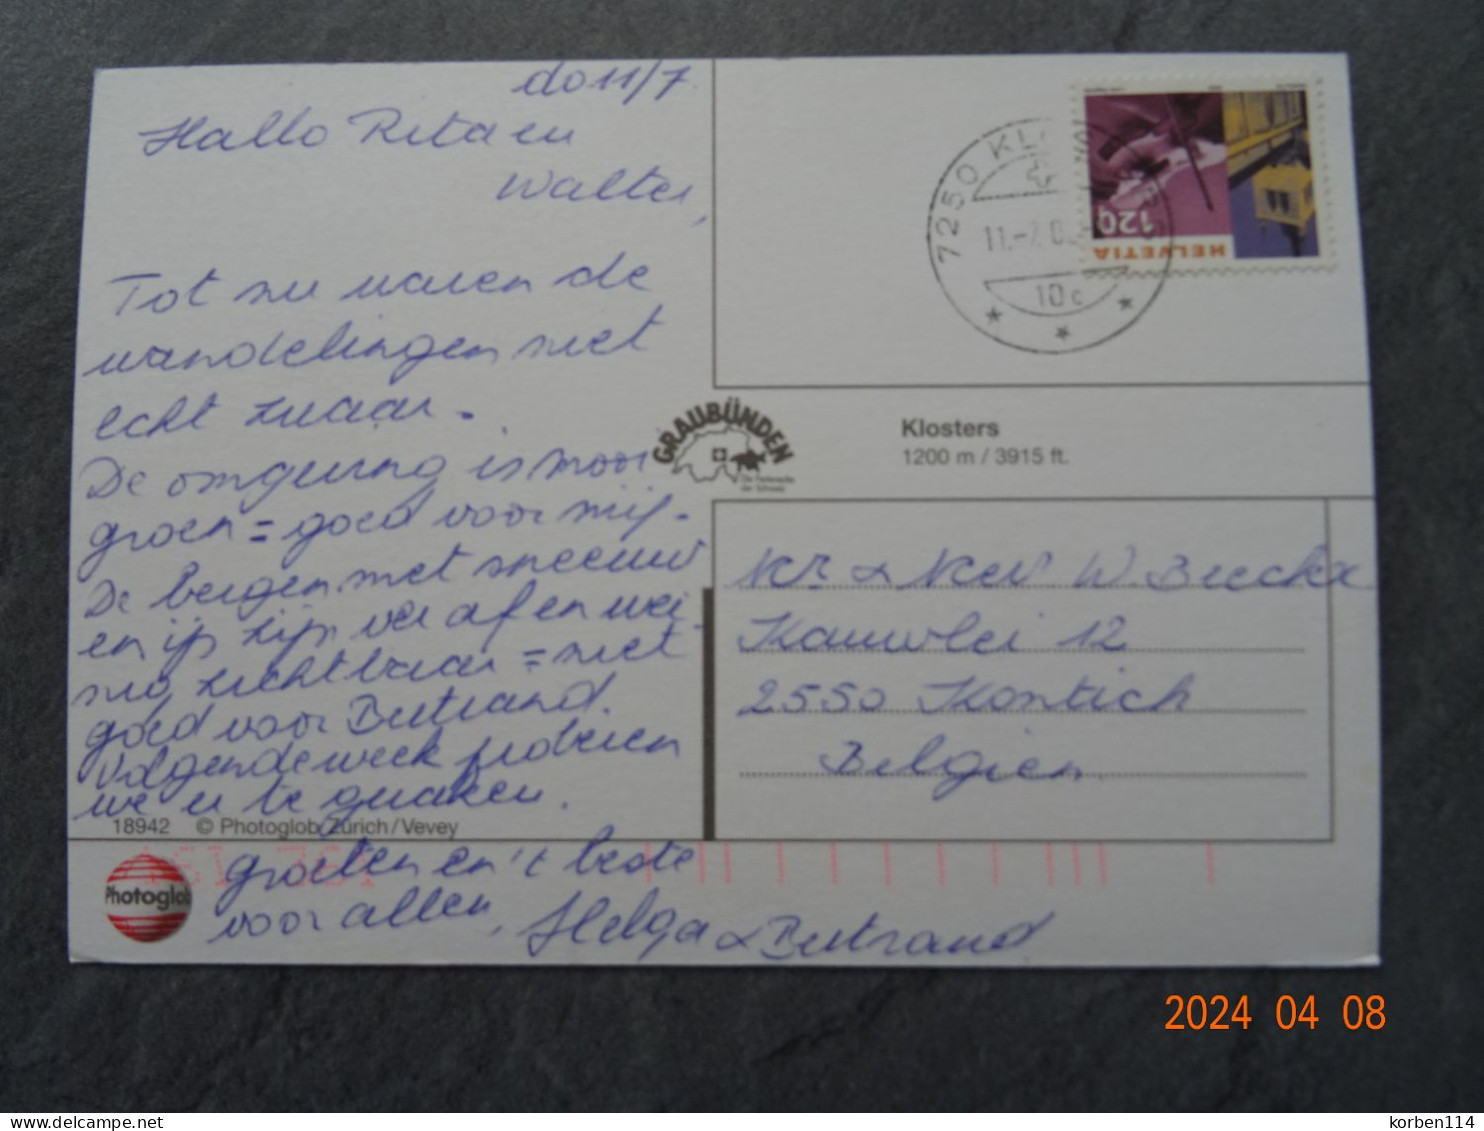 do 11/7
Hallo Rita en
Walter,
Tot nu waren de
wandelingen niet
echt zwaar.
De omgeving is mooi
groen = goed voor mij.
De bergen met sneeuw
en ijs zijn ver af en wei-
nig zichtbaar = niet
goed voor Bertrand.
Volgende week proberen
we er te geraken.
18942 © Photoglob Zürich/Vevey
groeten en 't beste
voor allen,
Helga & Bertrand
Photoglob
GRAUBÜNDEN
Die Ferienecke
der Schweiz
7250 KLO
11.-7.0
10c
120
HELVETIA
Klosters
1200 m / 3915 ft.
Mr & Mev W. Beeckx
2550 Kontich
Belgien
2024 04 08
korben114